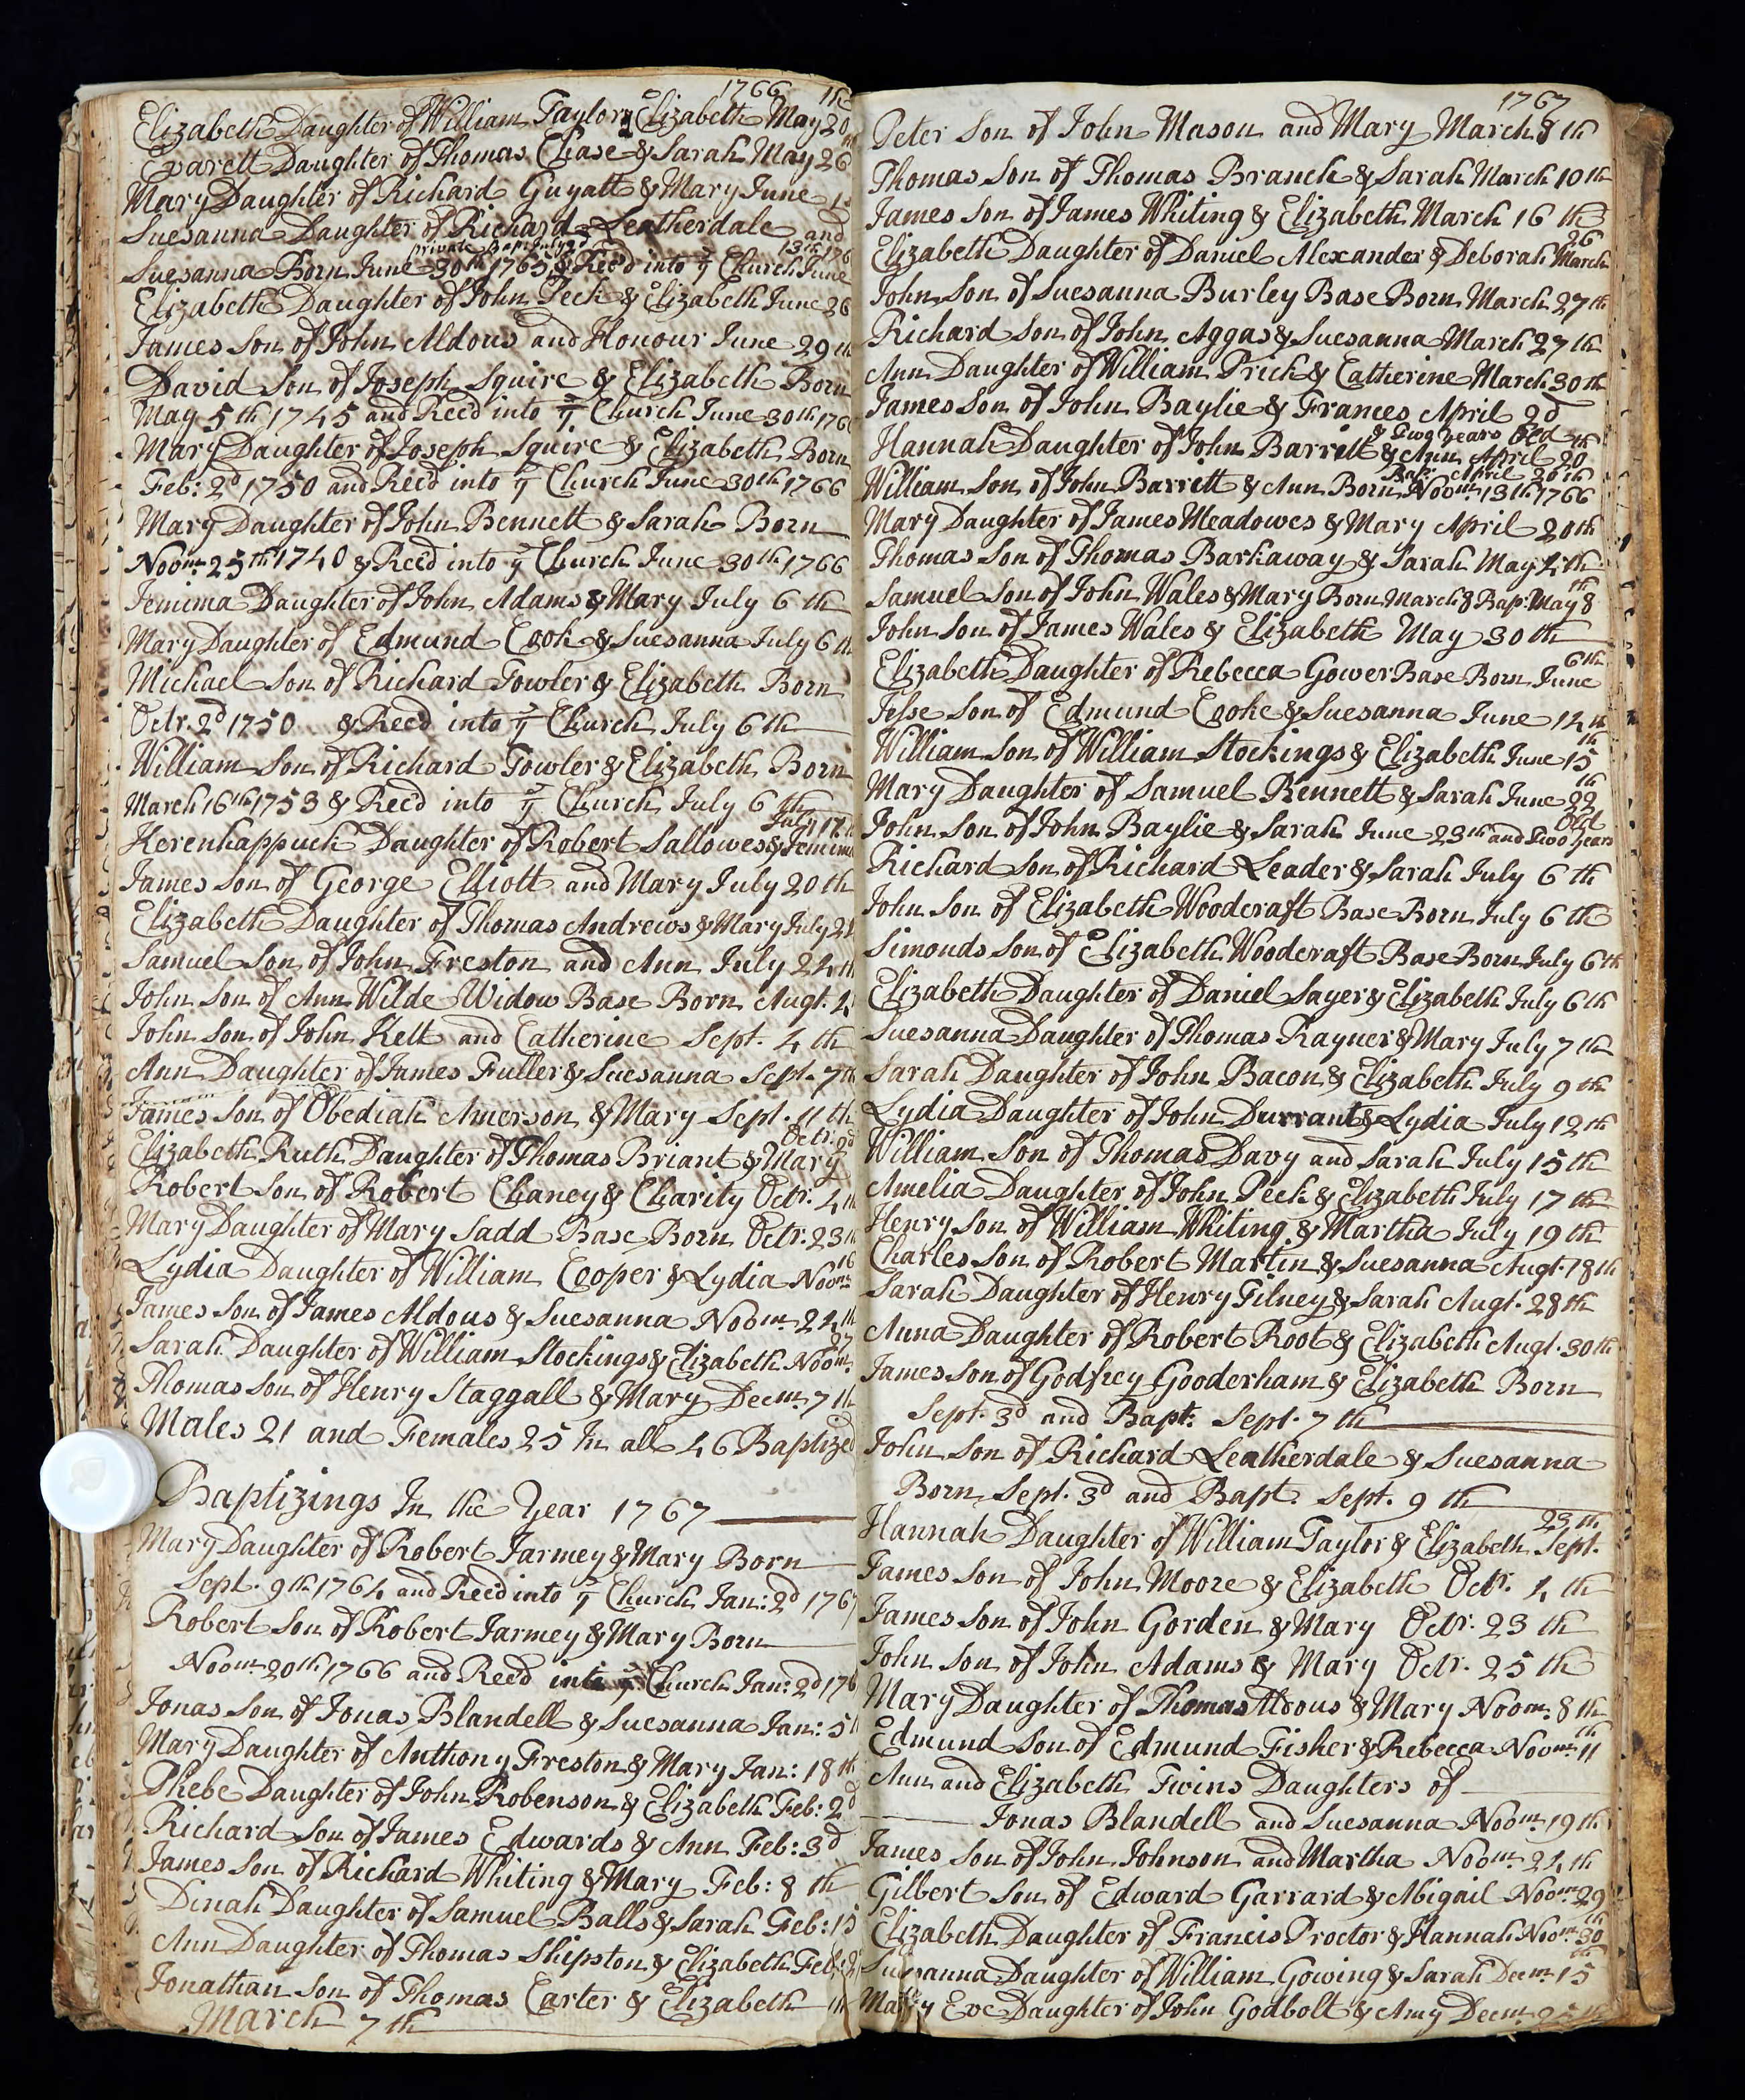 1766
Elizabeth Daughter of William Taylor & Elizabeth May 20
Daughter of Thomas Chase & Sarah May 26
Mary Daughter of Richard Guyatt & Mary June
Suesanna Daughter of Richard Leatherdale and
private Bap: July 2d 13th 176
Suesanna Born June 30th 1765 & Rec'd into ye Church June
Elizabeth Daughter of John Peck & Elizabeth June 26
James Son of John Aldous and Honour June 29th
David Son of Joseph Squire & Elizabeth Born
May 5th 1745 and Rec'd into ye Church June 30th 176
Mary Daughter of Joseph Squire & Elizabeth Born
Feb: 2d 1750 and Rec'd into ye Church June 30th 1766
Mary Daughter of John Bennett & Sarah Born
Novmr 25th 1740 & Rec'd into ye Church June 30th 1766
Jemima Daughter of John Adams & Mary July 6th
Mary Daughter of Edmund Cook & Suesanna July 6th
Michael Son of Richard Fowler & Elizabeth Born
Octr. 2d 1750 & Rec'd into ye Church July 6th
William Son of Richard Fowler & Elizabeth Born
March 16th 1753 & Rec'd into ye Church July 6th
July 17th
Kerenhappuch Daughter of Robert Sallowes & Jemima
James Son of George Elliott and Mary July 20th
Elizabeth Daughter of Thomas Andrews & Mary July 21
Samuel Son of John Freston and Ann July 24th
John Son of Ann Wilde Widow Base Born Augt. 4
John Son of John Kett and Catherine Sept. 4th
Ann Daughter of James Fuller & Suesanna Sept. 7th
James Son of Obediah Amerson & Mary Sept. 11th
Octr. 2d
Elizabeth Ruth Daughter of Thomas Briant & Mary
Robert Son of Robert Chaney & Charity Octr. 4th
Mary Daughter of Mary Sadd Base Born Octr. 23th
16
Lydia Daughter of William Cooper & Lydia Novmr
James Son of James Aldous & Suesanna Novmr 24th
27
Sarah Daughter of William Stockings & Elizabeth Novmr
Thomas Son of Henry Staggall & Mary Decmr 7th
Males 21 and Females 25 In all 46 Baptized
Baptizings In the Year 1767
Mary Daughter of Robert Jarmey & Mary Born
Sept. 9th 1764 and Rec'd into ye Church Jan: 2d 1767
Robert Son of Robert Jarmey & Mary Born
Novmr 20th 1766 and Rec'd into ye Church Jan: 2d 176
Jonas Son of Jonas Blandell & Suesanna Jan: 5th
Mary Daughter of Anthony Freston & Mary Jan: 18th
Phebe Daughter of John Robenson & Elizabeth Feb: 2d
Richard Son of James Edwards & Ann Feb: 3d
James Son of Richard Whiting & Mary Feb: 8th
Dinah Daughter of Samuel Balls & Sarah Feb: 15
Ann Daughter of Thomas Shipston & Elizabeth Feb:
Jonathan Son of Thomas Carter & Elizabeth
March 7th
1767
Peter Son of John Mason and Mary March 8th
Thomas Son of Thomas Branch & Sarah March 10th
James Son of James Whiting & Elizabeth March 16th
26
Elizabeth Daughter of Daniel Alexander & Deborah March
John Son of Suesanna Burley Base Born March 27th
Richard Son of John Aggas & Suesanna March 27th
Ann Daughter of William Prick & Catherine March 30th
James Son of John Baylie & Frances April 2d
& Two years Old
Hannah Daughter of John Barrett & Ann April 20th
Bap: April 20th
William Son of John Barrett & Ann Born Novmr 13th 1766
Mary Daughter of James Meadowes & Mary April 20th
Thomas Son of Thomas Barkaway & Sarah May 4th
Samuel Son of John Wales & Mary Born March 8 Bap: May 8th
John Son of James Wales & Elizabeth May 30th
6th
Elizabeth Daughter of Rebecca Gower Base Born June
Jesse Son of Edmund Cooke & Suesanna June 14th
William Son of William Stockings & Elizabeth June 15th
Mary Daughter of Samuel Bennett & Sarah June 22th
Old
John Son of John Baylie & Sarah June 23th and Two years
Richard Son of Richard Leader & Sarah July 6th
John Son of Elizabeth Woodcraft Base Born July 6th
Simonds Son of Elizabeth Woodcraft Base Born July 6th
Elizabeth Daughter of Daniel Sayer & Elizabeth July 6th
Suesanna Daughter of Thomas Rayner & Mary July 7th
Sarah Daughter of John Bacon & Elizabeth July 9th
Lydia Daughter of John Durrant & Lydia July 12th
William Son of Thomas Davy and Sarah July 15th
Amelia Daughter of John Peck & Elizabeth July 17th
Henry Son of William Whiting & Martha July 19th
Charles Son of Robert Martin & Suesanna Augt. 18th
Sarah Daughter of Henry Filney & Sarah Augt. 28th
Anna Daughter of Robert Root & Elizabeth Augt. 30th
James Son of Godfrey Gooderham & Elizabeth Born
Sept. 3d and Bapt: Sept. 7th
John Son of Richard Leatherdale & Suesanna
Born Sept. 3d and Bapt: Sept. 9th
23th
Hannah Daughter of William Taylor & Elizabeth Sept.
James Son of John Moore & Elizabeth Octr. 4th
James Son of John Gorden & Mary Octr. 23th
John Son of John Adams & Mary Octr. 25th
Mary Daughter of Thomas Aldous & Mary Novmr 8th
Edmund Son of Edmund Fisher & Rebecca Novmr 11th
Ann and Elizabeth Twins Daughters of
Jonas Blandell and Suesanna Novmr 19th
James Son of John Johnson and Martha Novmr 24th
Gilbert Son of Edward Garrard & Abigail Novmr 29
Elizabeth Daughter of Francis Proctor & Hannah Novmr 30th
Suesanna Daughter of William Gowing & Sarah Decmr 15th
Mary Eve Daughter of John Godbolt & Amy Decmr